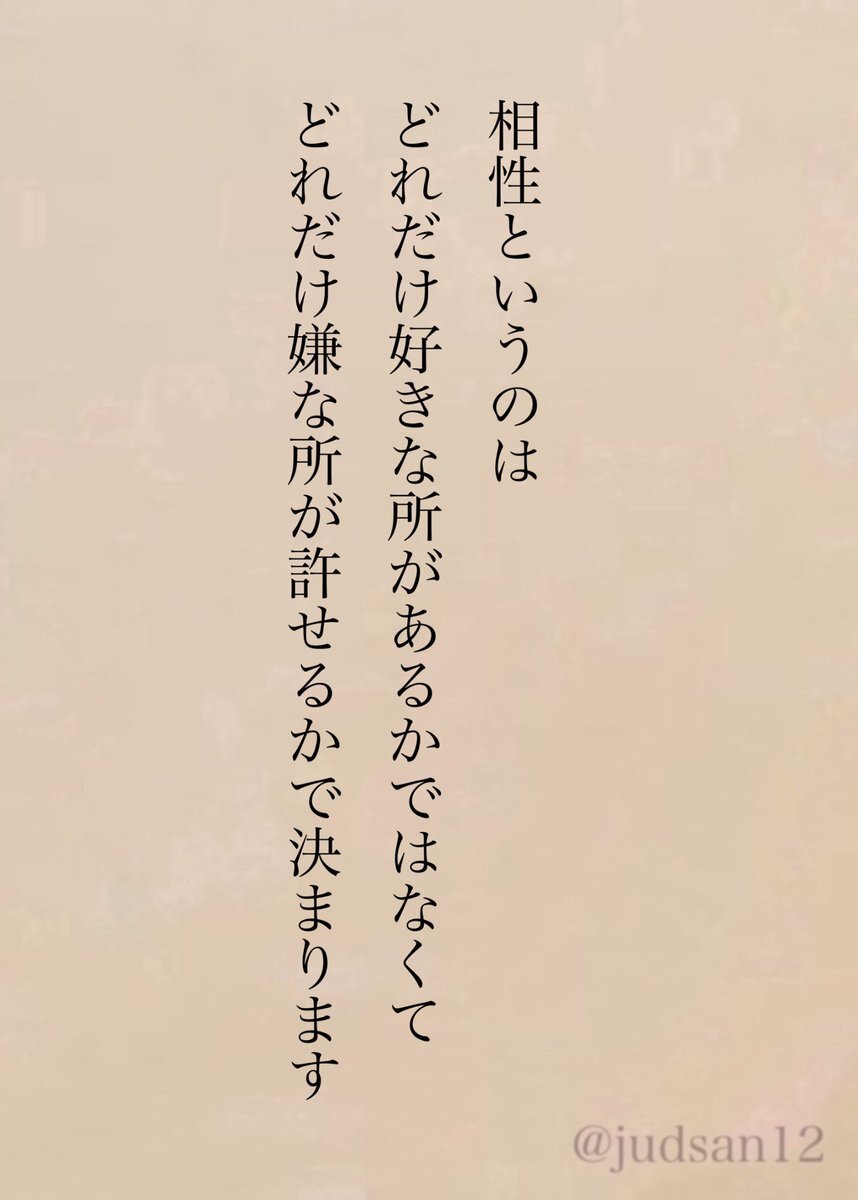 相性というのは
どれだけ好きな所があるかではなくて
どれだけ嫌な所が許せるかで決まります
@judsan12